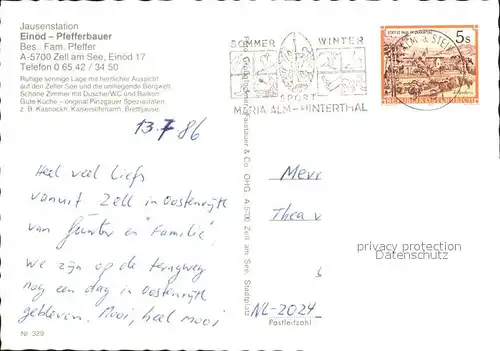 Jausenstation
Einöd – Pfefferbauer
Bes. Fam. Pfeffer
A-5700 Zell am See, Einöd 17
Telefon 0 65 42 / 34 50
Ruhige sonnige Lage mit herrlicher Aussicht
auf den Zeller See und die umliegende Bergwelt.
Schöne Zimmer mit Dusche/WC und Balkon
Gute Küche – original Pinzgauer Spezialitäten
z. B. Kasnockn, Kaiserschmarrn, Brettljause.
13.7 86
Heel veel liefs
vanuit Zell in Oostenrijk
van Günter en "Familie".
We zijn op de terugweg
nog een dag in Oostenrijk
gebleven. Mooi, heel mooi
Nr. 329
SOMMER WINTER
SPORT
MARIA ALM-HINTERTHAL
5s
REPUBLIK ÖSTERREICH
& Co. OHG, A 5700 Zell am See, Stadtplatz
Mevr
Thea v
privacy protection
Oldthing.de
NL-2024
Postleitzahl